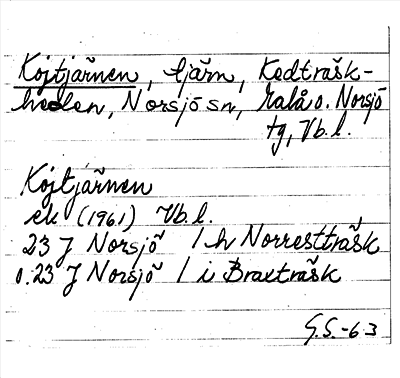 Kojtjärnen, tjärn, Kedträsk-
heden, Norsjö sn, Malå o. Norsjö
tg, Vb. l.
Kojtjärnen
ek (1961) Vb. l.
23 J Norsjö 1 h Norrestträsk
o. 23 J Norsjö 1 i Braxträsk
G.S.-63